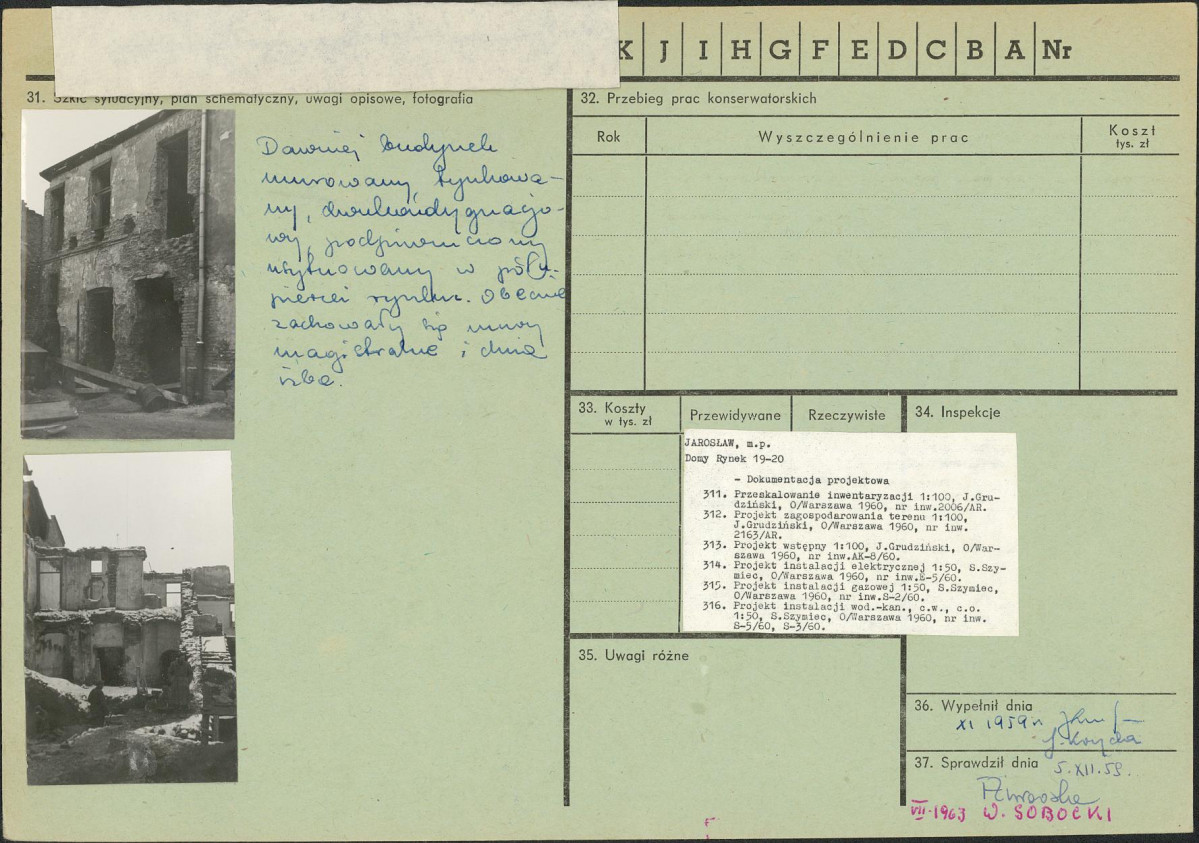 K J I H G F E D C B A Nr
31. Szkic sytuacyjny, plan schematyczny, uwagi opisowe, fotografia
Dawniej budynek
murowany, tynkowa-
ny, dwukondygnacjo-
wy, podpiwniczony
usytuowany w poł.
pierzei rynku. Obecnie
zachowały się mury
magistralne i
izba.
32. Przebieg prac konserwatorskich
Rok
Wyszczególnienie prac
Koszt
tys. zł
33. Koszty
w tys. zł
Przewidywane
Rzeczywiste
34. Inspekcje
JAROSŁAW, m.p.
Domy Rynek 19-20
- Dokumentacja projektowa
311. Przeskalowanie inwentaryzacji 1:100, J.Gru-
dziński, O/Warszawa 1960, nr inw.2006/AR.
312. Projekt zagospodarowania terenu 1:100,
J.Grudziński, O/Warszawa 1960, nr inw.
2163/AR.
313. Projekt wstępny 1:100, J.Grudziński, O/War-
szawa 1960, nr inw.AK-8/60.
314. Projekt instalacji elektrycznej 1:50, S.Szy-
miec, O/Warszawa 1960, nr inw.E-5/60.
315. Projekt instalacji gazowej 1:50, S.Szymiec,
O/Warszawa 1960, nr inw.S-2/60.
316. Projekt instalacji wod.-kan., c.w., c.o.
1:50, S.Szymiec, O/Warszawa 1960, nr inw.
S-5/60, S-3/60.
35. Uwagi różne
36. Wypełnił dnia
XI 1959 r
37. Sprawdził dnia
5.XII.59.
VII-1963 W. SOBOCKI